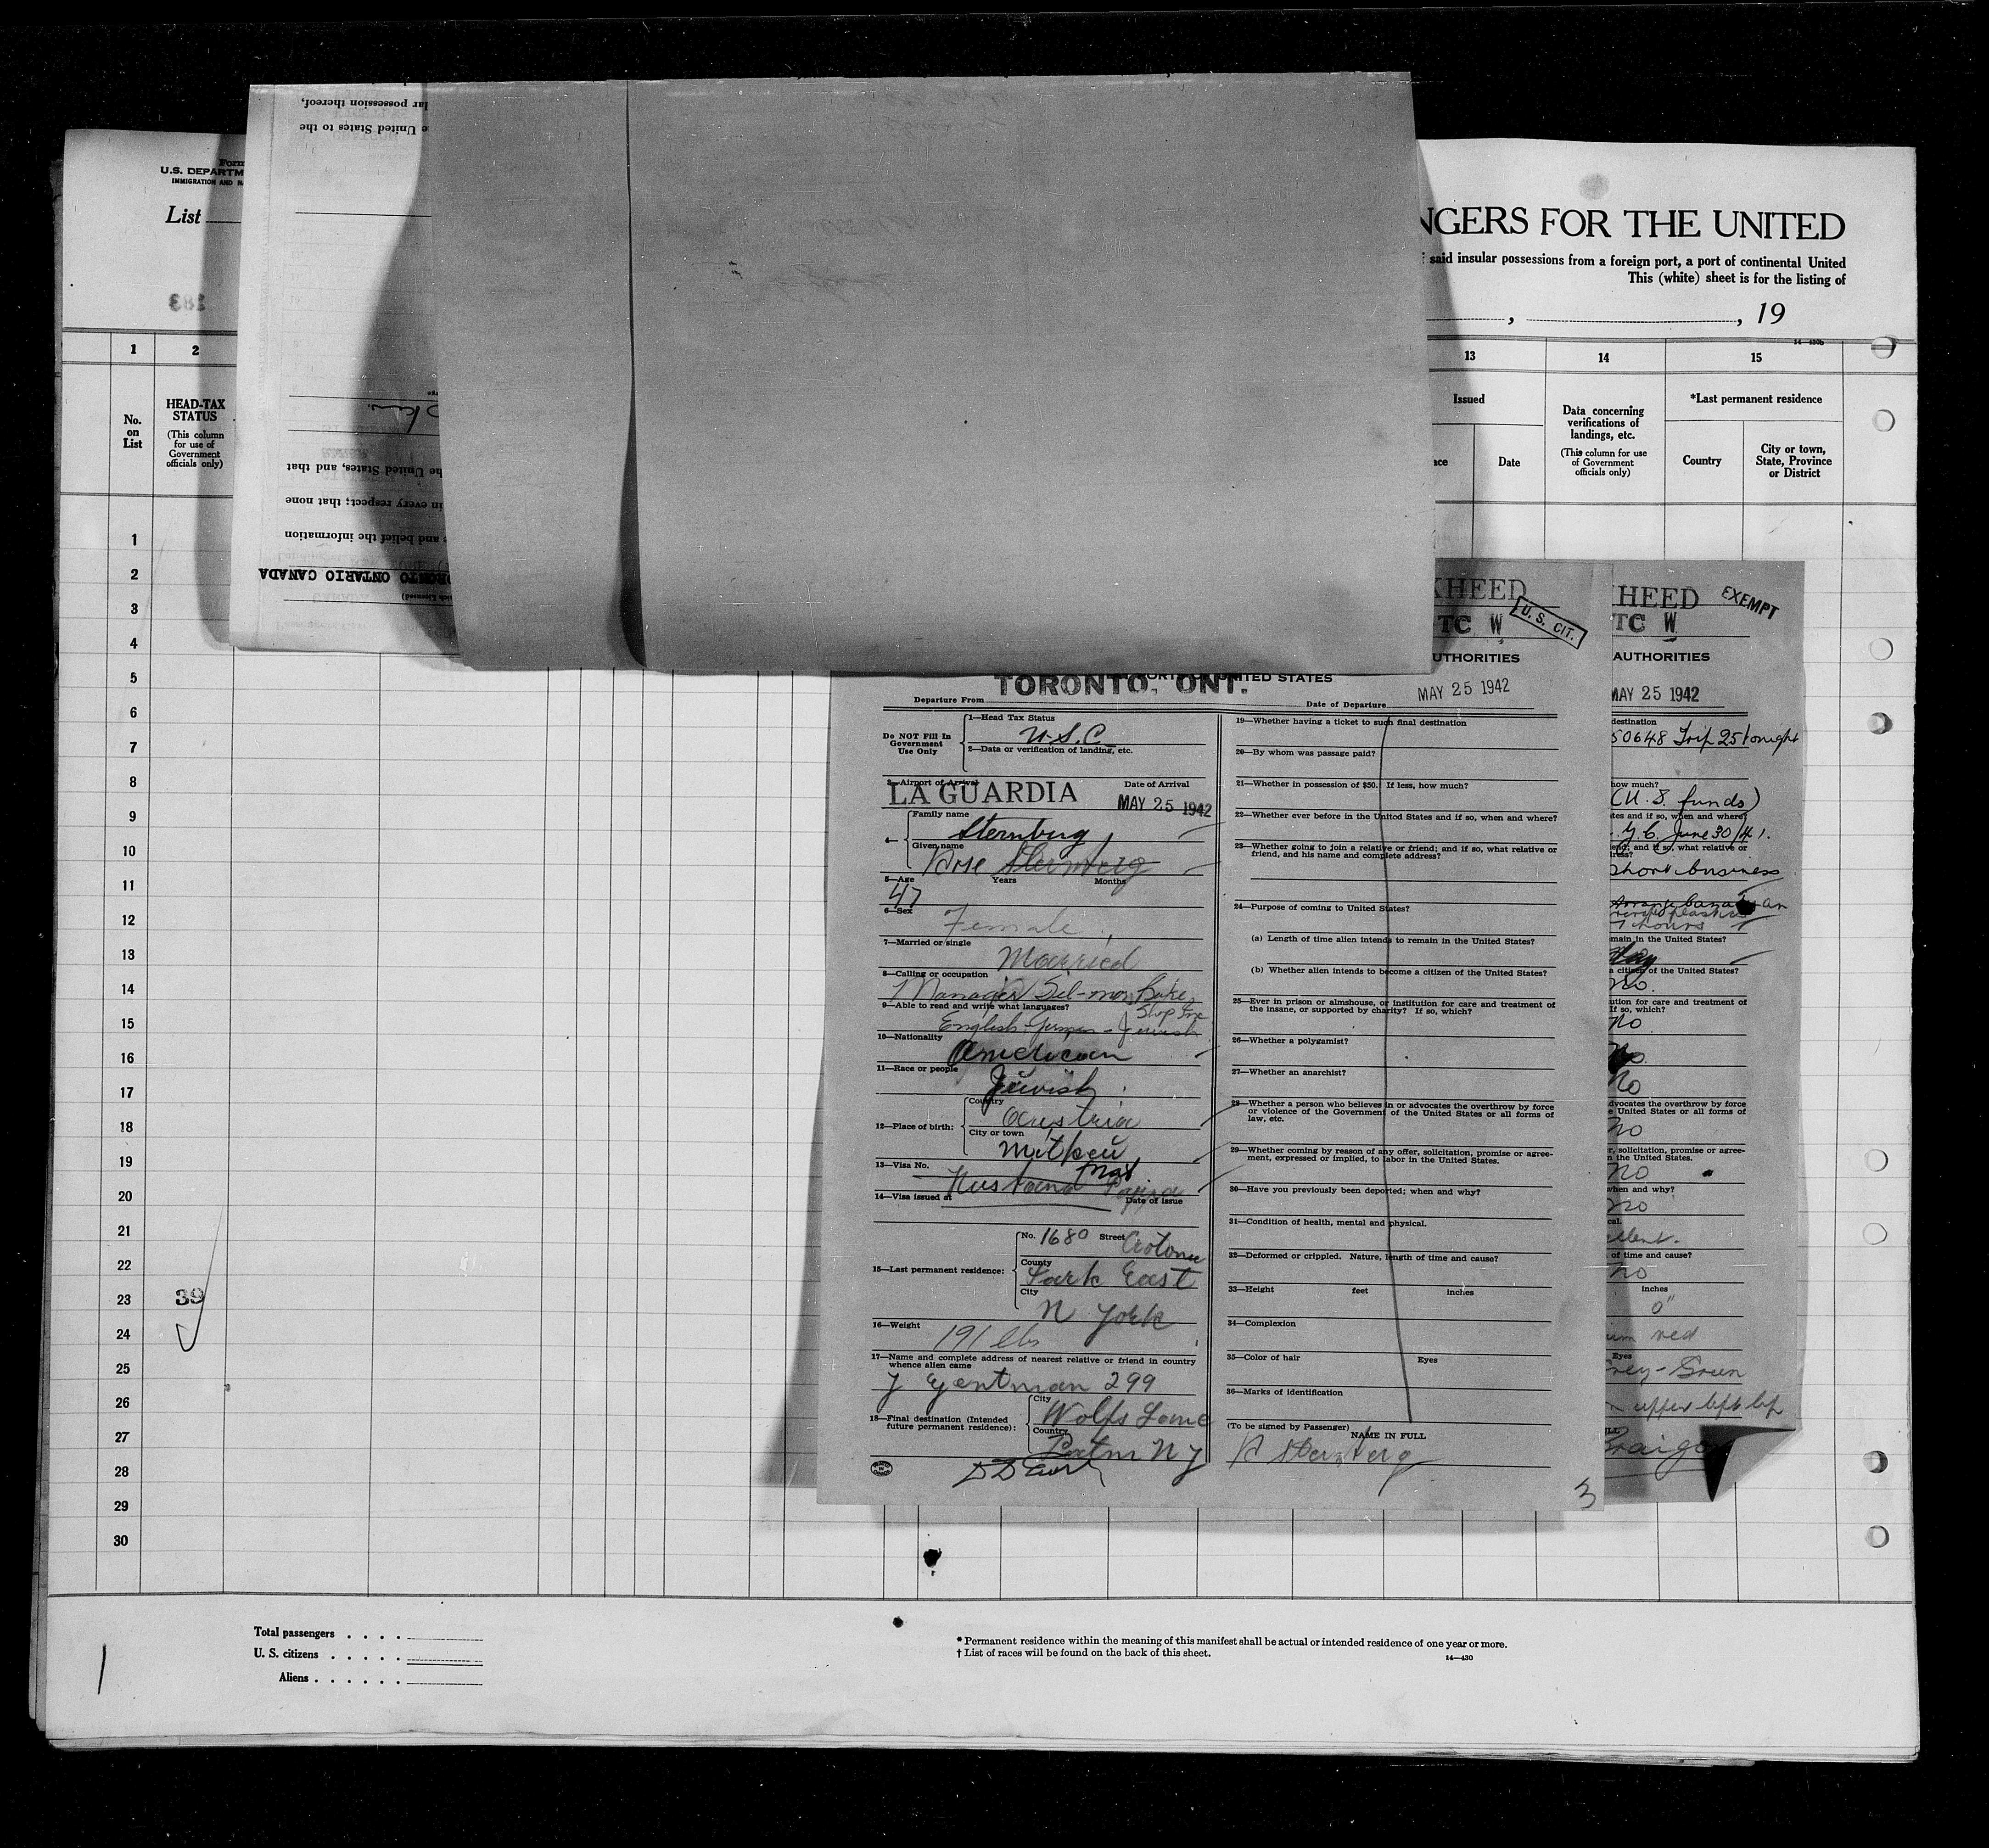 lar possession thereof,
e United States to the
Form
U.S. DEPARTM
IMMIGRATION AND NA
List
NGERS FOR THE UNITED
said insular possessions from a foreign port, a port of continental United
This (white) sheet is for the listing of
, , 19
14—430b
1 2 13 14 15
No.
on
List
HEAD-TAX
STATUS
(This column
for use of
Government
officials only)
Issued
ace Date
Data concerning
verifications of
landings, etc.
(This column for use
of Government
officials only)
*Last permanent residence
Country
City or town,
State, Province
or District
he United States, and that
in every respect; that none
e and belief the information
ORONTO ONTARIO CANADA
1
2
3
4
5
6
7
8
9
10
11
12
13
14
15
16
17
18
19
20
21
22
23
24
25
26
27
28
29
30
39
KHEED
U. S. CIT.
TC W
UTHORITIES
TORONTO, ONT.
UNITED STATES
MAY 25 1942
Departure From
Date of Departure
Do NOT Fill In
Government
Use Only
1—Head Tax Status
U.S.C.
2—Data or verification of landing, etc.
3—Airport of Arrival
Date of Arrival
LA GUARDIA MAY 25 1942
4—
Family name
Sternberg
Given name
Rose Sternberg
5—Age Years Months
47
6—Sex
Female
7—Married or single
Married
8—Calling or occupation
Manager Sil-mor Bake
Shop Inc
9—Able to read and write what languages?
English-German-Jewish
10—Nationality
American
11—Race or people
Jewish
12—Place of birth:
Country
Austria
City or town
13—Visa No.
Husband
14—Visa issued at
Date of issue
15—Last permanent residence:
No. 1680 Street Crotona
County
Park East
City
N York
16—Weight
191 lbs
17—Name and complete address of nearest relative or friend in country
whence alien came
299
18—Final destination (Intended
future permanent residence):
City
Wolfs Lane
Country
N Y
19—Whether having a ticket to such final destination
20—By whom was passage paid?
21—Whether in possession of $50. If less, how much?
22—Whether ever before in the United States and if so, when and where?
23—Whether going to join a relative or friend; and if so, what relative or
friend, and his name and complete address?
24—Purpose of coming to United States?
(a) Length of time alien intends to remain in the United States?
(b) Whether alien intends to become a citizen of the United States?
25—Ever in prison or almshouse, or institution for care and treatment of
the insane, or supported by charity? If so, which?
26—Whether a polygamist?
27—Whether an anarchist?
28—Whether a person who believes in or advocates the overthrow by force
or violence of the Government of the United States or all forms of
law, etc.
29—Whether coming by reason of any offer, solicitation, promise or agree-
ment, expressed or implied, to labor in the United States.
30—Have you previously been deported; when and why?
31—Condition of health, mental and physical.
32—Deformed or crippled. Nature, length of time and cause?
33—Height feet inches
34—Complexion
35—Color of hair Eyes
36—Marks of identification
(To be signed by Passenger)
NAME IN FULL
R Sternberg
3
HEED
EXEMPT
TC W
AUTHORITIES
MAY 25 1942
destination
50648 Trip 25 tonight
how much?
(U. S. funds)
tes and if so, when and where?
June 30/41.
end; and if so, what relative or
short business
7 hours
main in the United States?
a citizen of the United States?
no.
ution for care and treatment of
If so, which?
no
no.
no
dvocates the overthrow by force
e United States or all forms of
no
r, solicitation, promise or agree-
n the United States.
no
when and why?
no
cal.
ellent.
of time and cause?
no
inches
0"
ium red
Eyes
Grey-Green
n upper left lip
Total passengers . . . .
U. S. citizens . . . . .
Aliens . . . . . .
* Permanent residence within the meaning of this manifest shall be actual or intended residence of one year or more.
† List of races will be found on the back of this sheet.
14—430